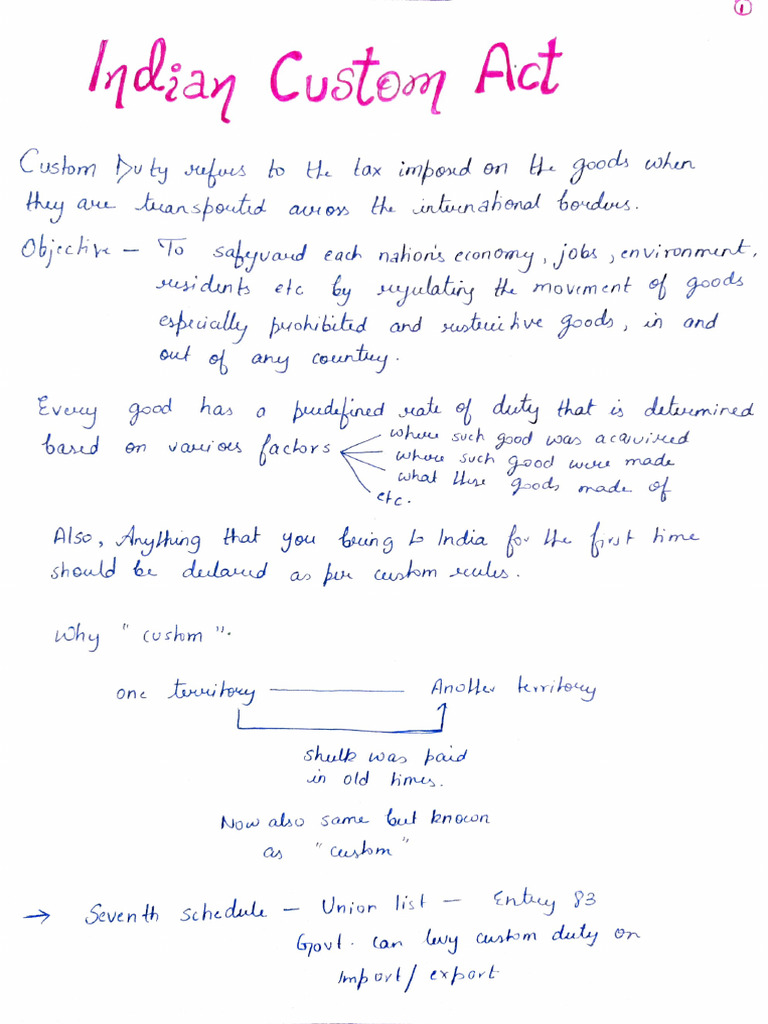 1
Indian Custom Act
Custom Duty refers to the tax imposed on the goods when
they are transported across the international borders.
Objective – To safeguard each nation's economy, jobs, environment,
residents etc by regulating the movement of goods
especially prohibited and restrictive goods, in and
out of any country.
Every good has a predefined rate of duty that is determined
based on various factors
where such good was acquired
where such good were made
what these goods made of
etc.
Also, Anything that you bring to India for the first time
should be declared as per custom rules.
Why "custom".
one territory Another territory
shulk was paid
in old times.
Now also same but known
as "custom"
→ Seventh schedule – Union list – Entry 83
Govt. can levy custom duty on
import/export